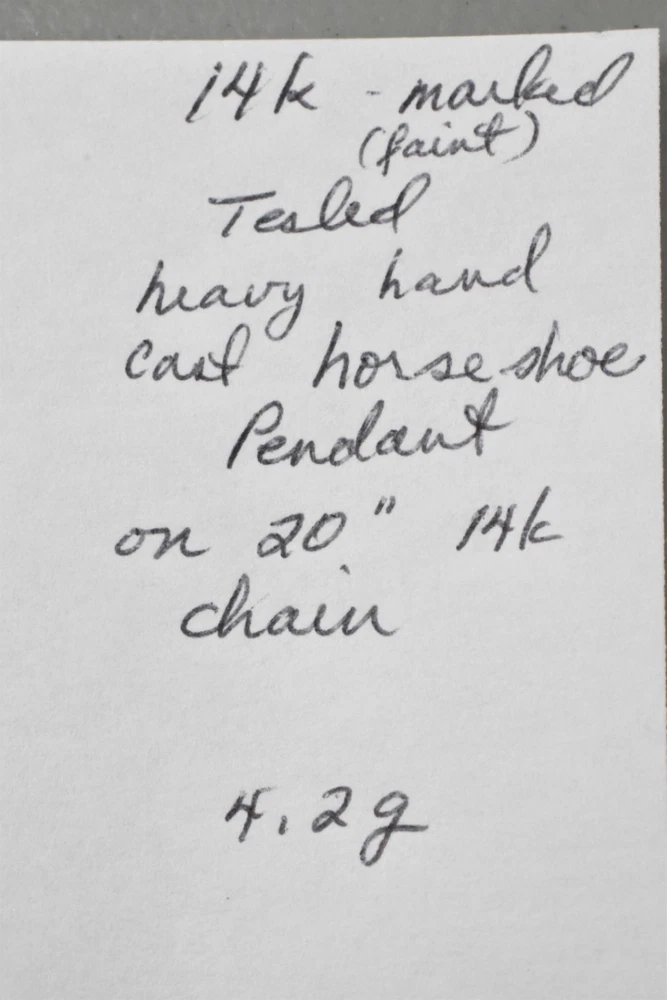 14k - marked
(faint)
Tested
heavy hand
cast horseshoe
Pendant
on 20" 14k
chain
4.2g